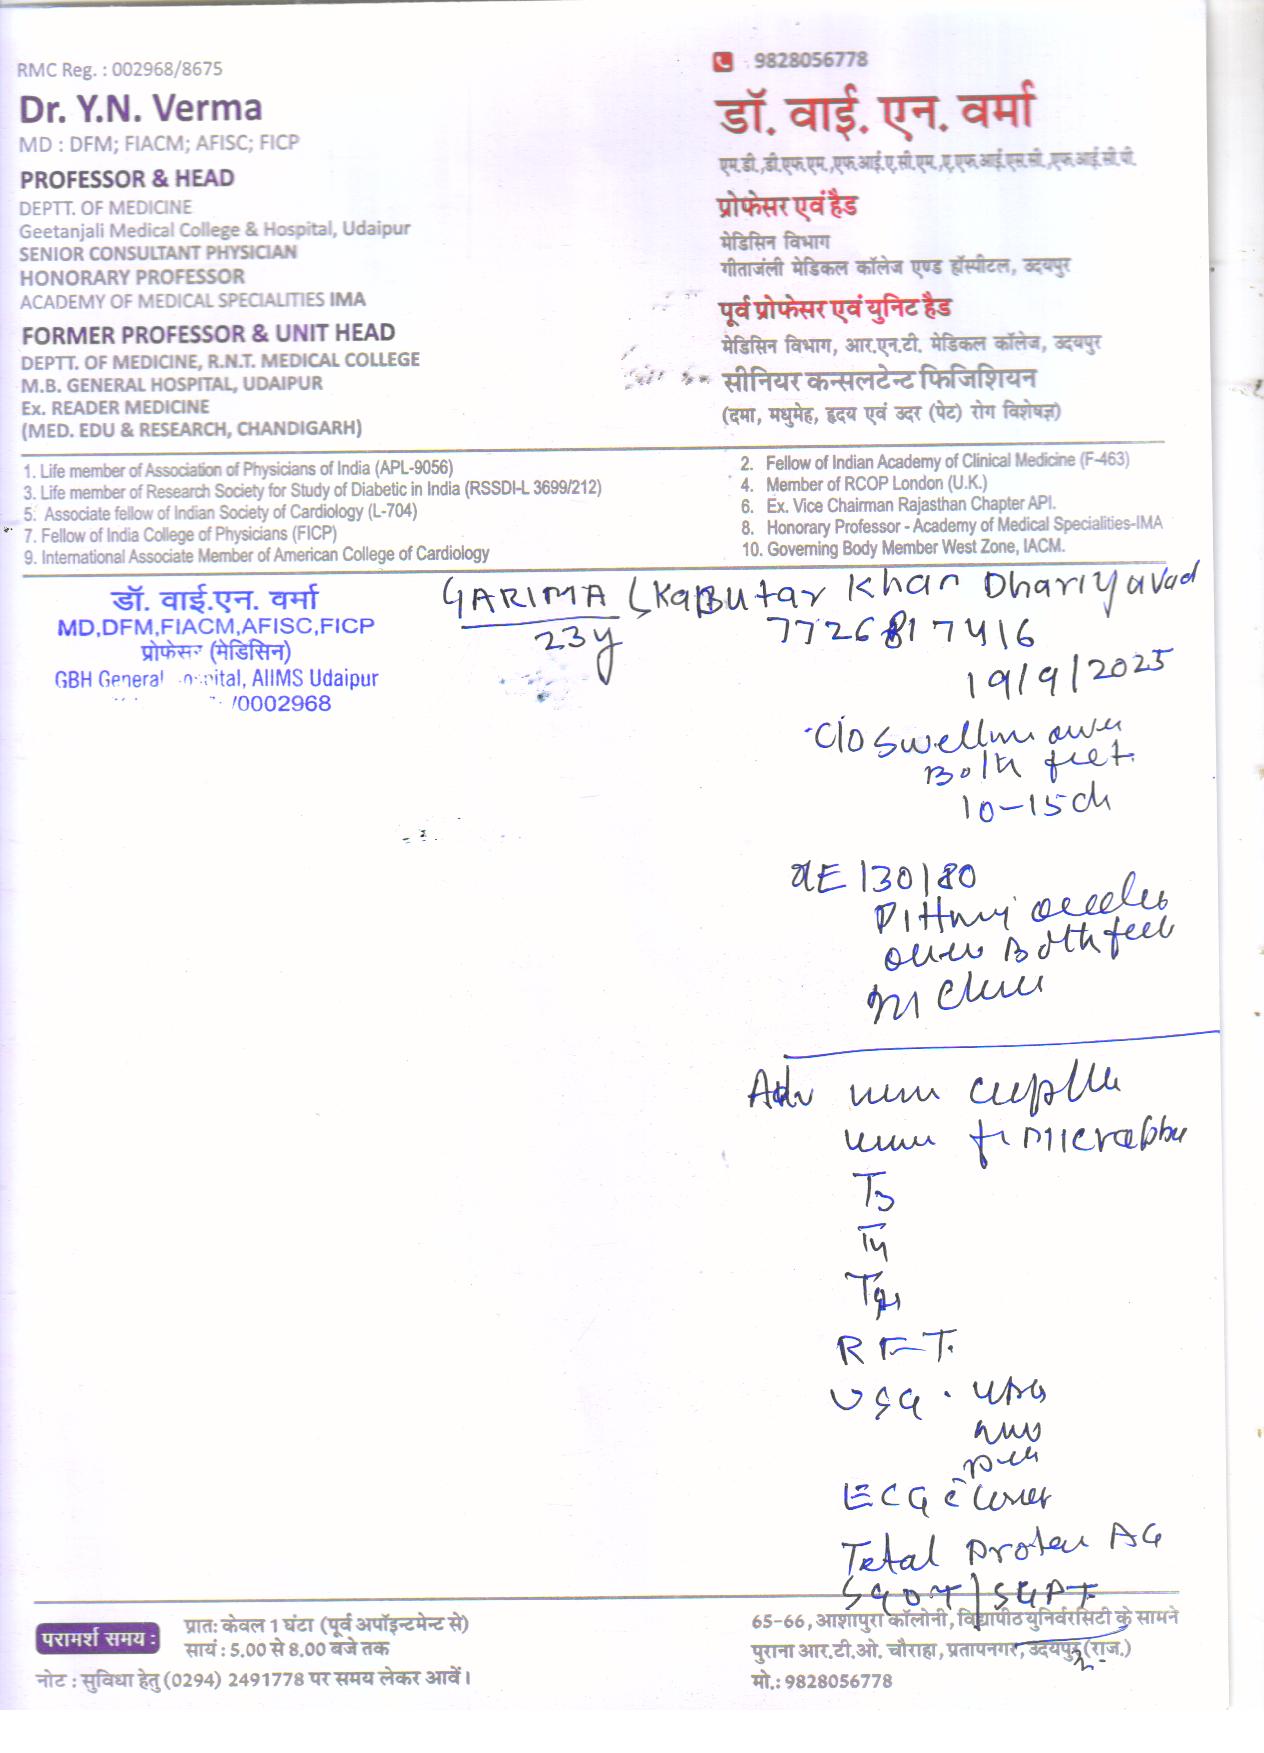 RMC Reg. : 002968/8675
Dr. Y.N. Verma
MD : DFM; FIACM; AFISC; FICP
PROFESSOR & HEAD
DEPTT. OF MEDICINE
Geetanjali Medical College & Hospital, Udaipur
SENIOR CONSULTANT PHYSICIAN
HONORARY PROFESSOR
ACADEMY OF MEDICAL SPECIALITIES IMA
FORMER PROFESSOR & UNIT HEAD
DEPTT. OF MEDICINE, R.N.T. MEDICAL COLLEGE
M.B. GENERAL HOSPITAL, UDAIPUR
Ex. READER MEDICINE
(MED. EDU & RESEARCH, CHANDIGARH)
9828056778
डॉ. वाई. एन. वर्मा
एम.डी.,डी.एफ.एम.,एफ.आई.ए.सी.एम.,ए.एफ.आई.एस.सी.,एफ.आई.सी.पी.
प्रोफेसर एवं हैड
मेडिसिन विभाग
गीतांजली मेडिकल कॉलेज एण्ड हॉस्पीटल, उदयपुर
पूर्व प्रोफेसर एवं युनिट हैड
मेडिसिन विभाग, आर.एन.टी. मेडिकल कॉलेज, उदयपुर
सीनियर कन्सलटेन्ट फिजिशियन
(दमा, मधुमेह, हृदय एवं उदर (पेट) रोग विशेषज्ञ)
1. Life member of Association of Physicians of India (APL-9056)
2. Fellow of Indian Academy of Clinical Medicine (F-463)
3. Life member of Research Society for Study of Diabetic in India (RSSDI-L 3699/212)
4. Member of RCOP London (U.K.)
5. Associate fellow of Indian Society of Cardiology (L-704)
6. Ex. Vice Chairman Rajasthan Chapter API.
7. Fellow of India College of Physicians (FICP)
8. Honorary Professor - Academy of Medical Specialities-IMA
9. International Associate Member of American College of Cardiology
10. Governing Body Member West Zone, IACM.
डॉ. वाई.एन. वर्मा
MD,DFM,FIACM,AFISC,FICP
प्रोफेसर (मेडिसिन)
GBH General Hospital, AIIMS Udaipur
/0002968
GARIMA Kabutar Khan Dhariyavad
23y 7726817416
19/9/2025
C/O Swelling over
Both feet
10-15d
OE 130/80
Pitting oedema
over Both feet
Adv urine complete
urine for microalbu
T3
T4
TSH
RFT
USG.
ECG c̄
Total Protein AG
SGOT/SGPT
परामर्श समय :
प्रातः केवल 1 घंटा (पूर्व अपॉइन्टमेन्ट से)
सायं : 5.00 से 8.00 बजे तक
नोट : सुविधा हेतु (0294) 2491778 पर समय लेकर आवें।
65-66, आशापुरा कॉलोनी, विद्यापीठ युनिर्वरसिटी के सामने
पुराना आर.टी.ओ. चौराहा, प्रतापनगर, उदयपुर (राज.)
मो.: 9828056778